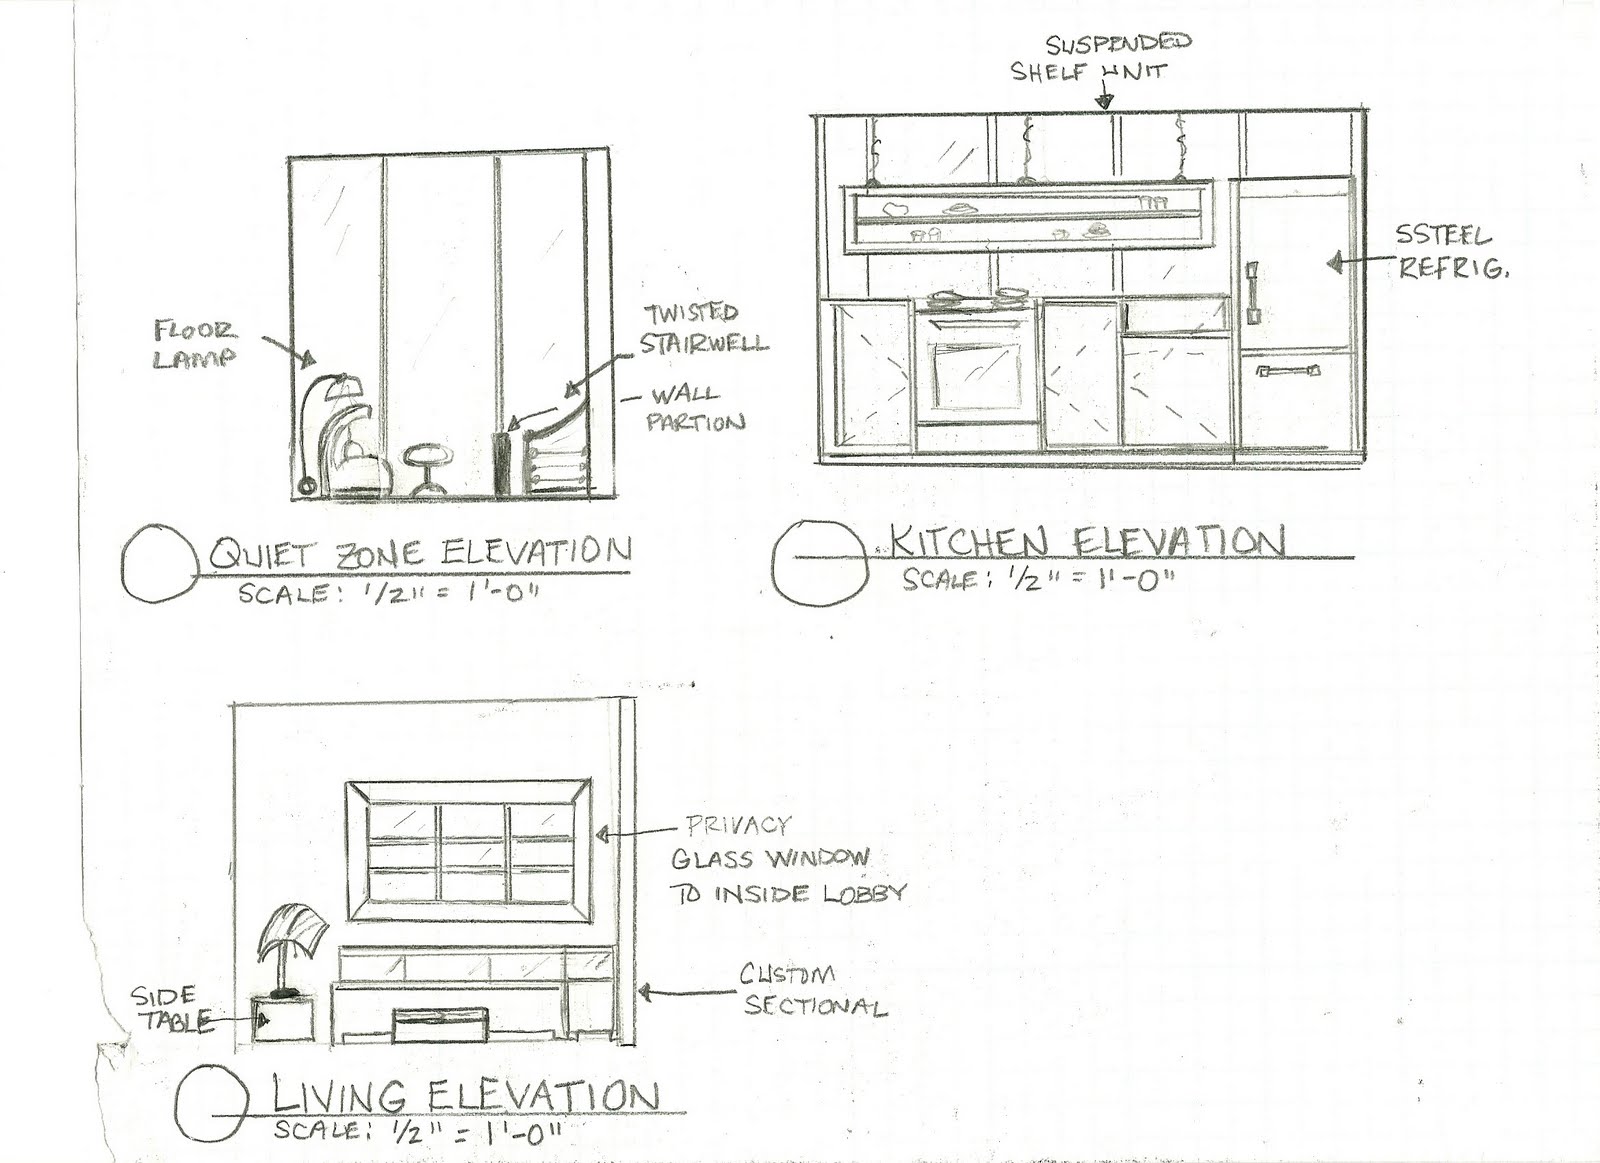 SUSPENDED
SHELF UNIT
SSTEEL
REFRIG.
FLOOR
LAMP
TWISTED
STAIRWELL
WALL
PARTION
QUIET ZONE ELEVATION
SCALE: 1/2" = 1'-0"
KITCHEN ELEVATION
SCALE: 1/2" = 1'-0"
PRIVACY
GLASS WINDOW
TO INSIDE LOBBY
CUSTOM
SECTIONAL
SIDE
TABLE
LIVING ELEVATION
SCALE: 1/2" = 1'-0"